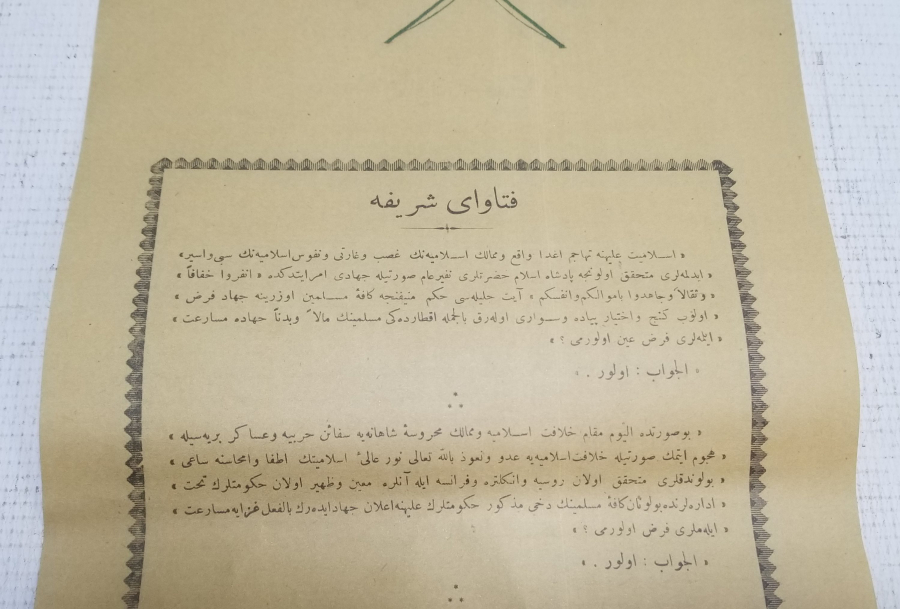 فتاوای شریفه
« اسلامیت علیهنه تهاجم اعدا واقع وممالك اسلامیه‌نك غصب وغارتی ونفوس اسلامیه‌نك سبی واسیر»
« ایدلمه‌لری متحقق اولونجه پادشاه اسلام حضرتلری نفیر عام صورتیله جهادی امر ایتدكده « انفروا خفافاً »
« وثقالاً وجاهدوا باموالكم وانفسكم » آیت جلیله‌سی حكم منیفنجه كافهٔ مسلمین اوزرینه جهاد فرض »
« اولوب كنج واختیار پیاده وسواری اوله‌رق بالجمله اقطارده‌كی مسلمینك مالاً وبدناً جهاده مسارعت »
« ایلمه‌لری فرض عین اولورمی ؟ »
« الجواب : اولور . »
« بوصورتده الیوم مقام خلافت اسلامیه وممالك محروسهٔ شاهانه‌یه سفائن حربیه وعساكر بریه‌سیله »
« هجوم ایتمك صورتیله خلافت اسلامیه‌یه عدو ونعوذ بالله تعالی نور عالیٔ اسلامیتك اطفا وامحاسنه ساعی »
« بولوندقلری متحقق اولان روسیه وانكلتره وفرانسه ایله آنلره معین وظهیر اولان حكومتلرك تحت »
« اداره‌لرنده بولونان كافهٔ مسلمینك دخی مذكور حكومتلرك علیهنه اعلان جهاد ایده‌رك بالفعل غزایه مسارعت »
« ایلمه‌لری فرض اولورمی ؟ »
« الجواب : اولور . »